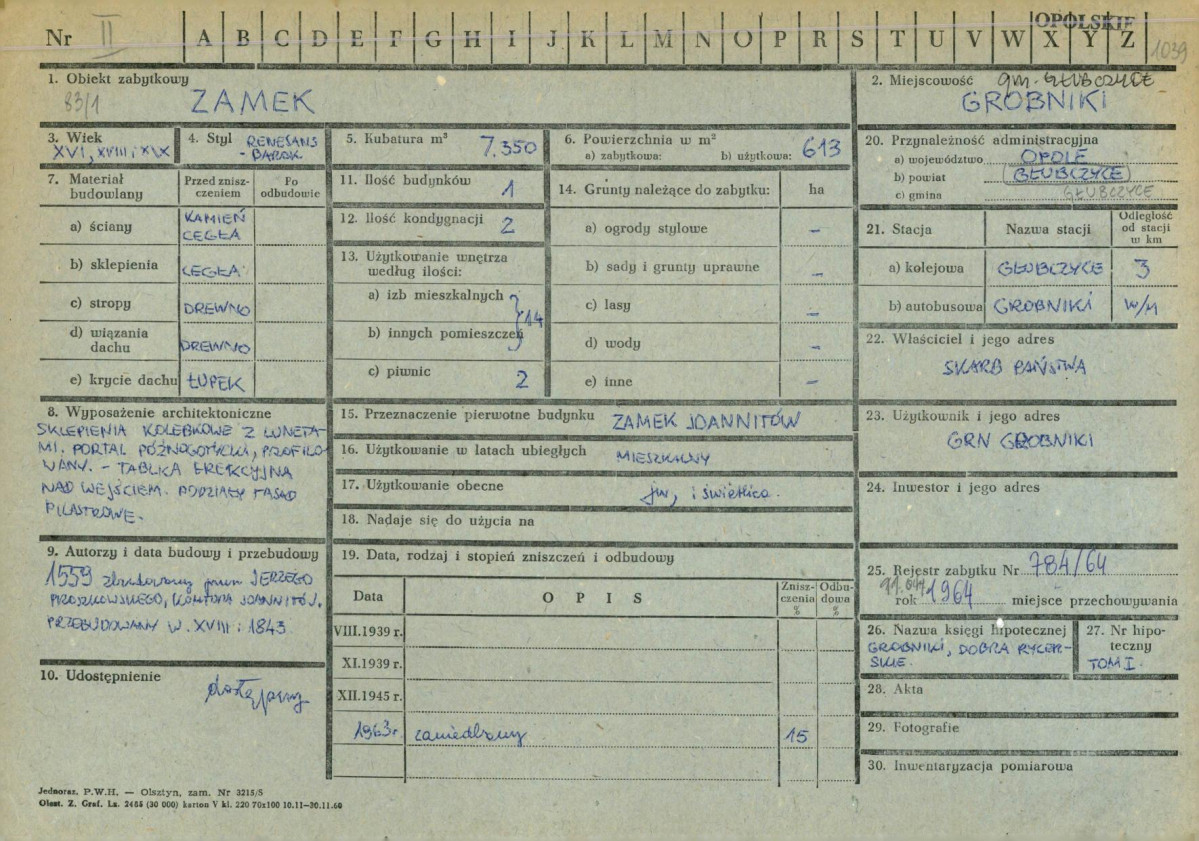 OPOLSKIE
Nr II A B C D E F G H I J K L M N O P R S T U V W X Y Z
1039
1. Obiekt zabytkowy
83/1
ZAMEK
2. Miejscowość gm. GŁUBCZYCE
GROBNIKI
3. Wiek
XVI, XVIII i XIX
4. Styl RENESANS
- BAROK
5. Kubatura m³
7.350
6. Powierzchnia w m²
a) zabytkowa: b) użytkowa: 613
7. Materiał budowlany
Przed znisz-
czeniem
Po
odbudowie
a) ściany KAMIEŃ
CEGŁA
b) sklepienia CEGŁA
c) stropy DREWNO
d) wiązania
dachu DREWNO
e) krycie dachu ŁUPEK
8. Wyposażenie architektoniczne
SKLEPIENIA KOLEBKOWE Z LUNETA-
MI. PORTAL PÓŹNOGOTYCKI, PROFILO-
WANY. - TABLICA EREKCYJNA
NAD WEJŚCIEM. PODZIAŁY FASAD
PILASTROWE.
9. Autorzy i data budowy i przebudowy
1559 zbudowany przez JERZEGO
PROSZKOWSKIEGO, KOMTURA JOANNITÓW.
PRZEBUDOWANY W. XVIII i 1843
10. Udostępnienie
dostępny
11. Ilość budynków 1
12. Ilość kondygnacji 2
13. Użytkowanie wnętrza
według ilości:
a) izb mieszkalnych
b) innych pomieszczeń 14
c) piwnic 2
14. Grunty należące do zabytku: ha
a) ogrody stylowe –
b) sady i grunty uprawne –
c) lasy –
d) wody –
e) inne –
15. Przeznaczenie pierwotne budynku ZAMEK JOANNITÓW
16. Użytkowanie w latach ubiegłych MIESZKALNY
17. Użytkowanie obecne jw, i świetlica.
18. Nadaje się do użycia na
19. Data, rodzaj i stopień zniszczeń i odbudowy
Data O P I S Znisz-
czenia
% Odbu-
dowa
%
VIII.1939 r.
XI.1939 r.
XII.1945 r.
1963r. zaniedbany 15
20. Przynależność administracyjna
a) województwo OPOLE
b) powiat GŁUBCZYCE
c) gmina GŁUBCZYCE
21. Stacja Nazwa stacji Odległość
od stacji
w km
a) kolejowa GŁUBCZYCE 3
b) autobusowa GROBNIKI w/m
22. Właściciel i jego adres
SKARB PAŃSTWA
23. Użytkownik i jego adres
GRN GROBNIKI
24. Inwestor i jego adres
25. Rejestr zabytku Nr 784/64
rok 1964 miejsce przechowywania
26. Nazwa księgi hipotecznej
GROBNIKI, DOBRA RYCER-
SKIE.
27. Nr hipo-
teczny
TOM I.
28. Akta
29. Fotografie
30. Inwentaryzacja pomiarowa
Jednoraz. P.W.H. — Olsztyn, zam. Nr 3215/S
Olszt. Z. Graf. Lz. 2465 (30 000) karton V kl. 220 70x100 10.11—30.11.60